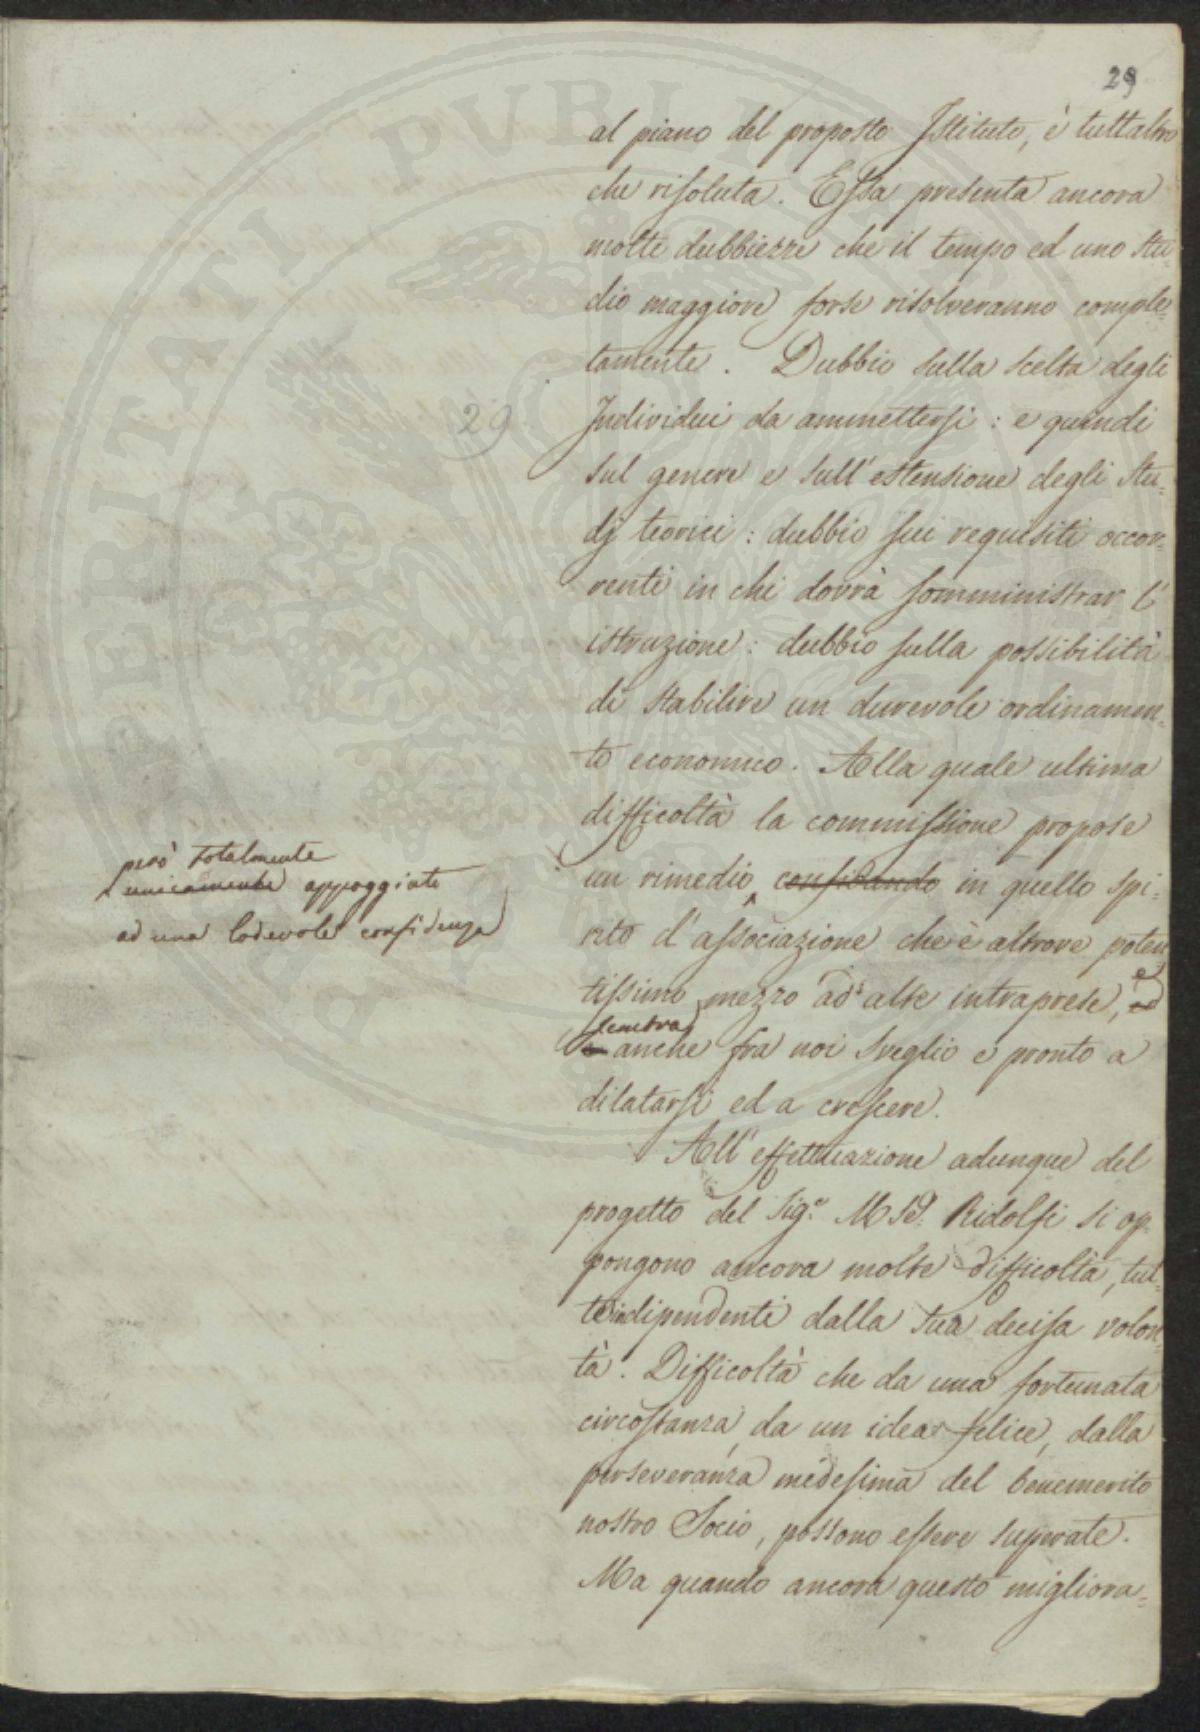 29
al piano del proposto Istituto, è tuttaltro
che risoluta. Essa presenta ancora
molte dubbiezze che il tempo ed uno stu-
dio maggiore forse risolveranno comple-
tamente. Dubbio sulla scelta degli
Individui da ammettersi: e quindi
29
sul genere e sull'estensione degli stu-
dj teorici: dubbio sui requisiti occor-
renti in chi dovrà somministrar l'
istruzione: dubbio sulla possibilità
di stabilire un durevole ordinamen-
to economico. Alla quale ultima
difficoltà la commissione propose
un rimedio confidando in quello spi-
però totalmente
unicamente appoggiato
ad una lodevole confidenza
rito d'associazione che è altrove poten
tissimo mezzo ad alte intraprese, ed e
sembra
è anche fra noi sveglio e pronto a
dilatarsi ed a crescere.
All'effettuazione adunque del
progetto del Sigr. Mse. Ridolfi si op-
pongono ancora molte difficoltà, tut-
te indipendenti dalla sua decisa volon-
tà. Difficoltà che da una fortunata
circostanza, da un idea felice, dalla
perseveranza medesima del benemerito
nostro Socio, possono essere superate.
Ma quando ancora questo migliora-
PERITATI PUBLICA